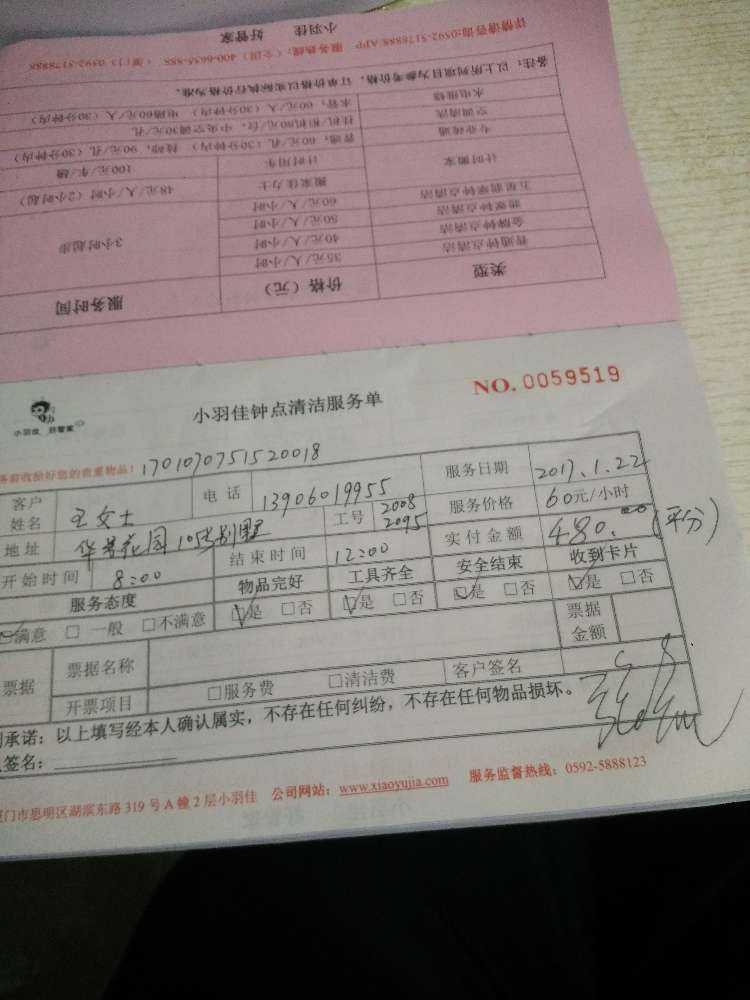 小羽佳 好管家
详情请咨询:0592-5178888/APP 服务热线：(全国) 400-6635-888 (厦门) 0592-5178888
备注：以上所列项目为参考价格，订单价格以实际执行价格为准。
水电报修 水管，60元/人（30分钟内） 电路60元/人（30分钟内）
空调清洗 挂机/柜机80元/台，中央空调30元/孔
专业疏通 普通，60元/孔（30分钟内） 疑难，90元/孔（30分钟）
计时搬家 计时用车 100元/车/趟
搬家佳力士 48元/人/小时（2小时起）
五星钟点清洁 60元/人/小时
钟点清洁 50元/人/小时
金牌钟点清洁 40元/人/小时
普通钟点清洁 35元/人/小时
3小时起步
类型 价格（元） 服务时间
NO. 0059519
小羽佳 好管家
小羽佳钟点清洁服务单
务前收拾好您的贵重物品！ 1701070751520018
客户姓名 王女士 电话 13906019955 服务日期 2017.1.22
地址 华景花园105别墅 工号 2008 2095 服务价格 60元/小时
开始时间 8:00 结束时间 12:00 实付金额 480.00 (平分)
服务态度 物品完好 工具齐全 安全结束 收到卡片
☑满意 □一般 □不满意 ☑是 □否 ☑是 □否 ☑是 □否 ☑是 □否
票据 票据名称 票据金额
开票项目 □服务费 □清洁费 客户签名
承诺：以上填写经本人确认属实，不存在任何纠纷，不存在任何物品损坏。
签名：
厦门市思明区湖滨东路319号A幢2层小羽佳 公司网站：www.xiaoyujia.com 服务监督热线：0592-5888123